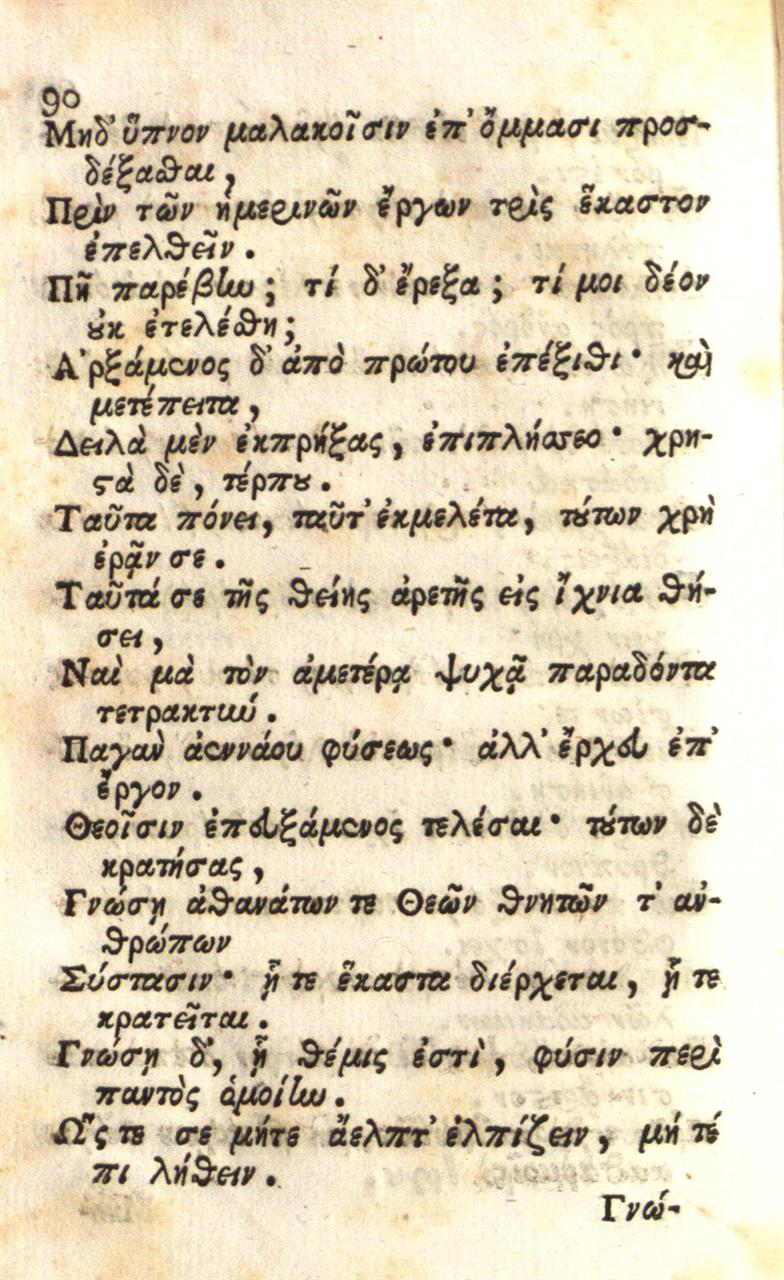 90
Μηδ' ὕπνον μαλακοῖσιν ἐπ' ὄμμασι προσ-
δέξασθαι,
Πρὶν τῶν ἡμερινῶν ἔργων τρὶς ἕκαστον
ἐπελθεῖν.
Πῆ παρέβην; τί δ' ἔρεξα; τί μοι δέον
οὐκ ἐτελέσθη;
Α'ρξάμενος δ' ἀπὸ πρώτου ἐπέξιθι· καὶ
μετέπειτα,
Δειλὰ μὲν ἐκπρήξας, ἐπιπλήσσεο· χρη-
στὰ δὲ, τέρπου.
Ταῦτα πόνει, ταῦτ' ἐκμελέτα, τούτων χρὴ
ἐρᾷν σε.
Ταῦτά σε τῆς θείης ἀρετῆς εἰς ἴχνια θή-
σει,
Ναὶ μὰ τὸν ἁμετέρᾳ ψυχᾷ παραδόντα
τετρακτιύ.
Παγαν̀ ἀεννάου φύσεως· ἀλλ' ἔρχευ ἐπ'
ἔργον.
Θεοῖσιν ἐπευξάμενος τελέσαι· τούτων δὲ
κρατήσας,
Γνώσῃ ἀθανάτων τε Θεῶν θνητῶν τ' ἀν-
θρώπων
Σύστασιν· ᾗ τε ἕκαστα διέρχεται, ᾗ τε
κρατεῖται.
Γνώσῃ δ', ᾗ θέμις ἐστὶ, φύσιν περὶ
παντὸς ὁμοίην.
Ω῞ς τε σε μήτε ἄελπτ' ἐλπίζειν, μή τέ
πι λήθειν.
Γνώ-